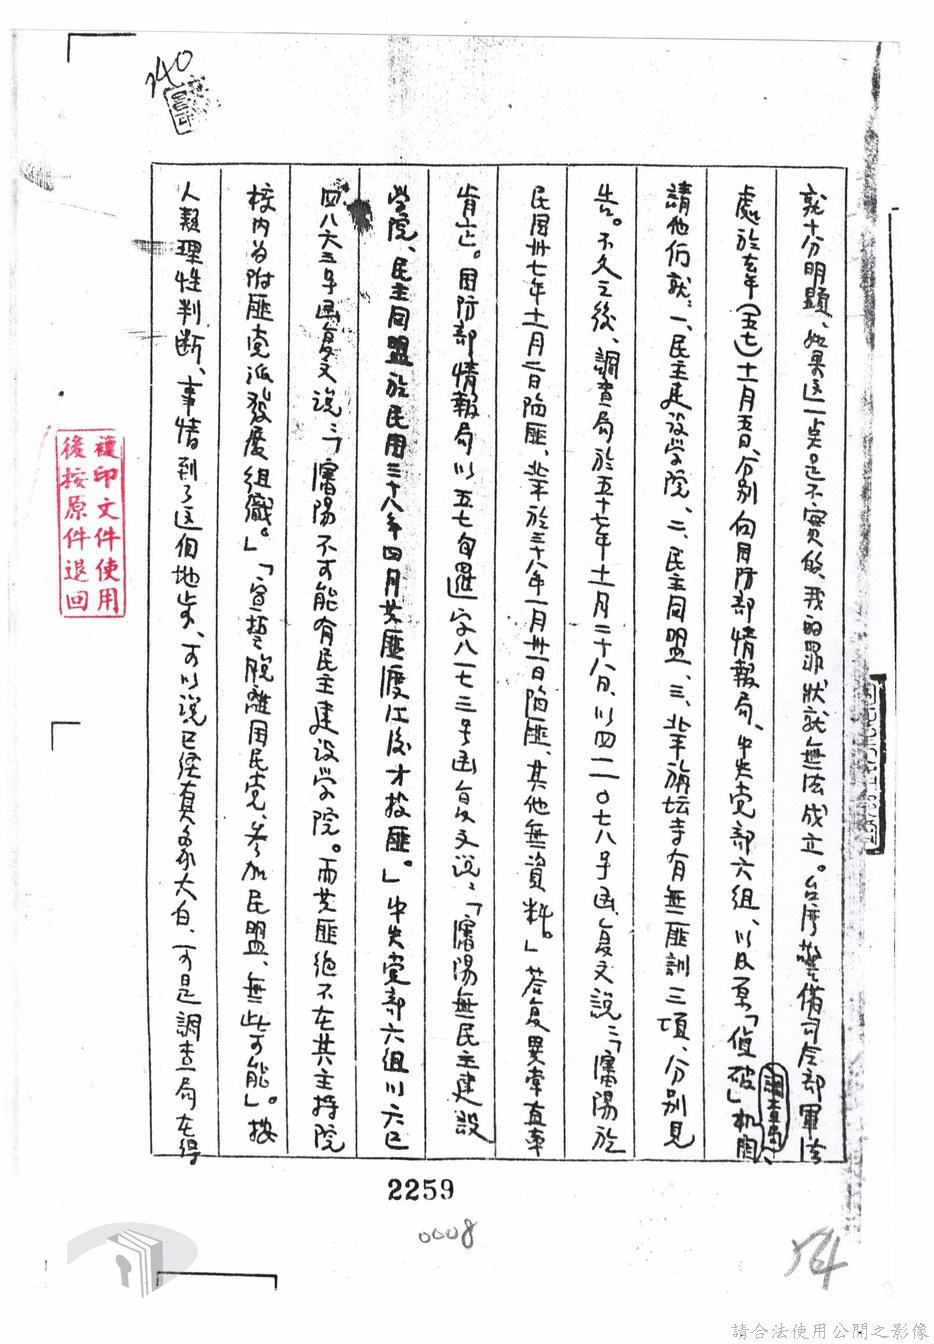 就十分明顯、如果这一点是不实的、我的罪狀就無法成立。台湾警備司令部軍法
處於去年（五七）十一月五日、分別向国防部情報局、中央党部六组、以及原「偵破」机関
調查局、
請他们就：一、民主建设学院、二、民主同盟、三、北平旃坛寺有無匪訓三項、分別見
告。不久之後、調查局於五十七年十一月二十八日、以四二〇七八号函复文説：「瀋陽於
民国卅七年十一月二日陷匪、北平於三十八年一月卅一日陷匪、其他無資料。」答复異常直率
肯定。国防部情報局以五七旬遷字八一七三号函复文说：「瀋陽無民主建設
学院、民主同盟於民国三十八年四月共匪渡江後才投匪。」中央党部六组以六巳
四八六三号函复文说：「瀋陽不可能有民主建设学院。而共匪绝不在其主持院
校内为附匪党派發展组織。」「宣誓脱離国民党、參加民盟、無此可能」。按
人類理性判断、事情到了这個地步、可以说已经真象大白、可是調查局在得
2259
0008
54
140
複印文件使用
後按原件退回
請合法使用公開之影像